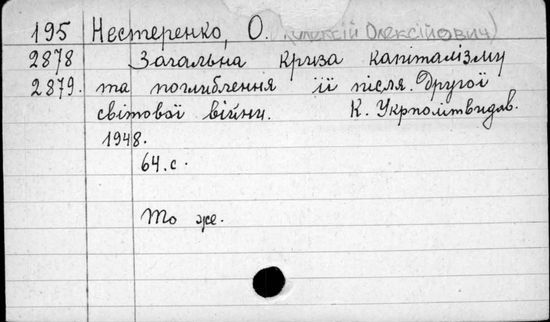 195 Нестеренко, О. Олексійович)
2878 Загальна криза капіталізму
2879. та поглиблення її після Другої
світової війни. К. Укрполітвидав.
1948.
64. с.
То же.